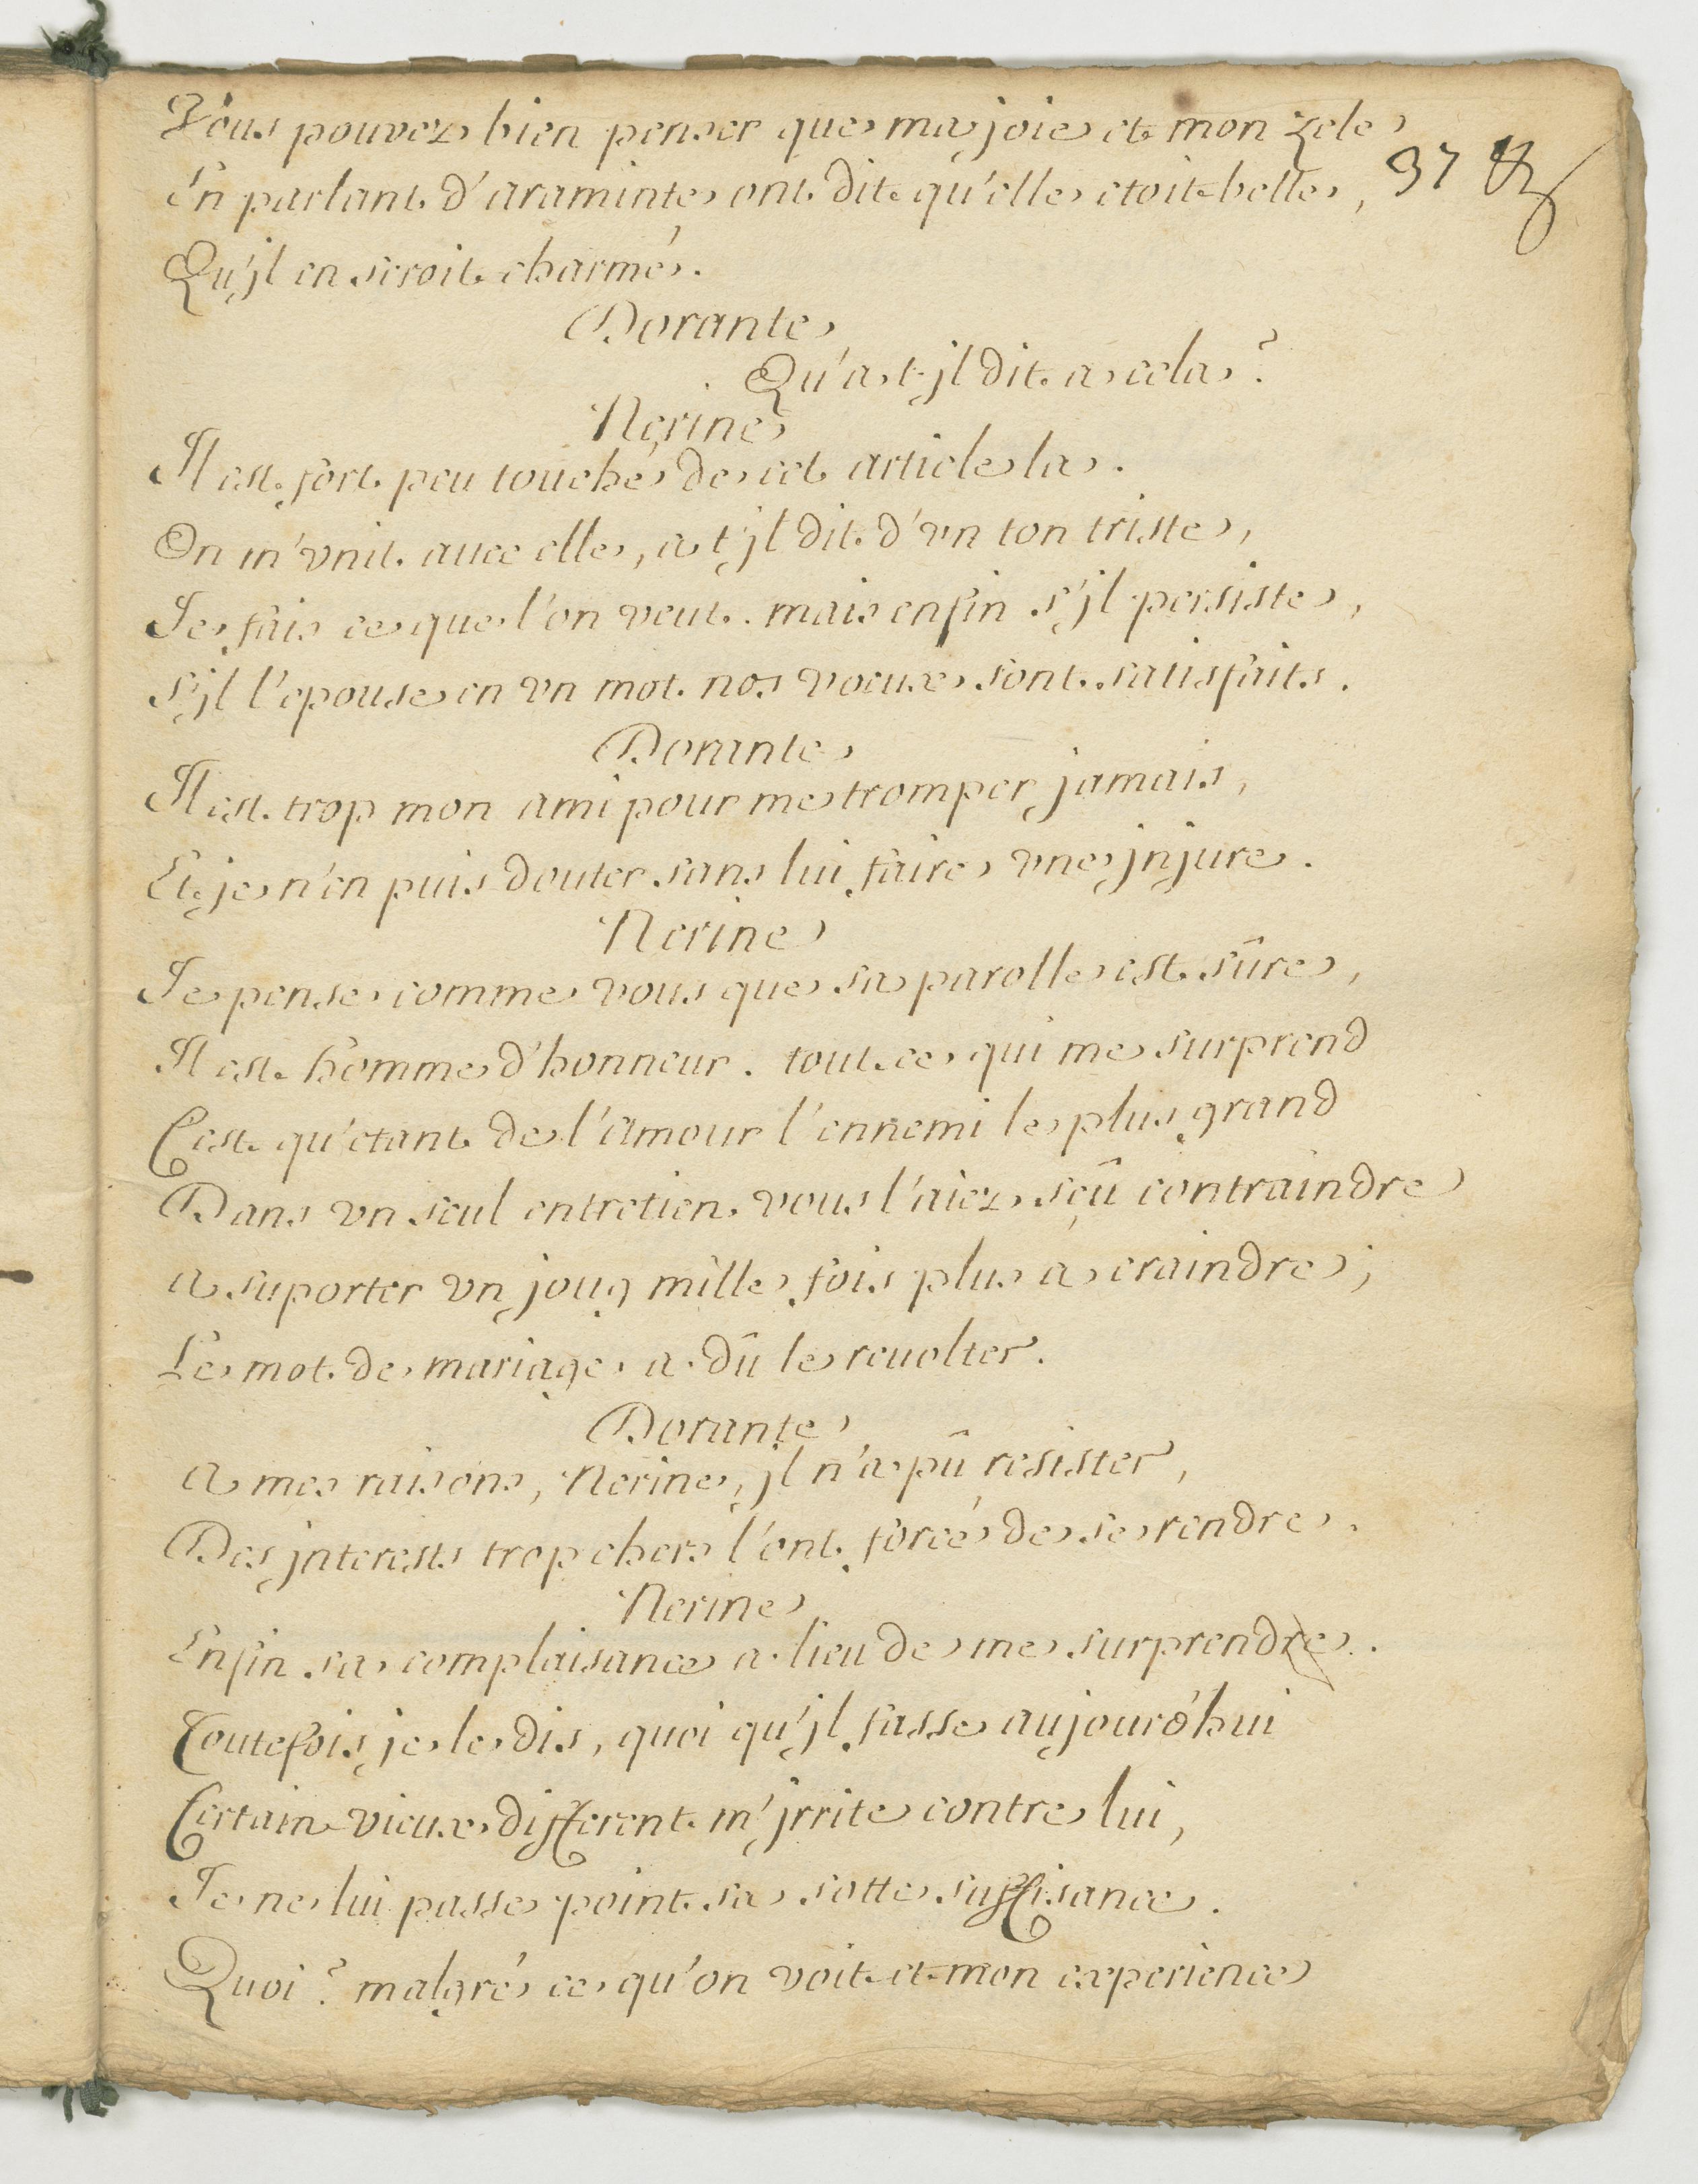 Vous pouvez bien penser que ma joie et mon zele
En parlant d'araminte ont dit qu'elle etoit belle,
37
Qu'jl en seroit charmé.
Dorante
Qu'a t-jl dit a cela?
Nerine
Il est fort peu touché de cet article la.
On m'vnit auec elle, a t'jl dit d'vn ton triste,
Je fais ce que l'on veut. mais enfin s'jl persiste,
s'jl l'epouse en vn mot nos voeux sont satisfaits.
Dorante
Il est trop mon ami pour me tromper jamais,
Et je n'en puis douter sans lui faire vne jnjure.
Nerine
Je pense comme vous que sa parolle est sûre,
Il est homme d'honneur. tout ce qui me surprend
C'est qu'etant de l'amour l'ennemi le plus grand
Dans vn seul entretien vous l'aiez sçû contraindre
a suporter vn joug mille fois plus a craindre;
Le mot de mariage a dû le reuolter.
Dorante
a mes raisons, Nerine, jl n'a pû resister,
Des jnterests trop chers l'ont forcé de se rendre.
Nerine
Enfin sa complaisance a lieu de me surprendre.
Toutefois je le dis, quoi qu'jl fasse aujourd'hui
Certain vieux different m'jrrite contre lui,
Je ne lui passe point sa sotte suffisance.
Quoi? malgré ce qu'on voit et mon experience